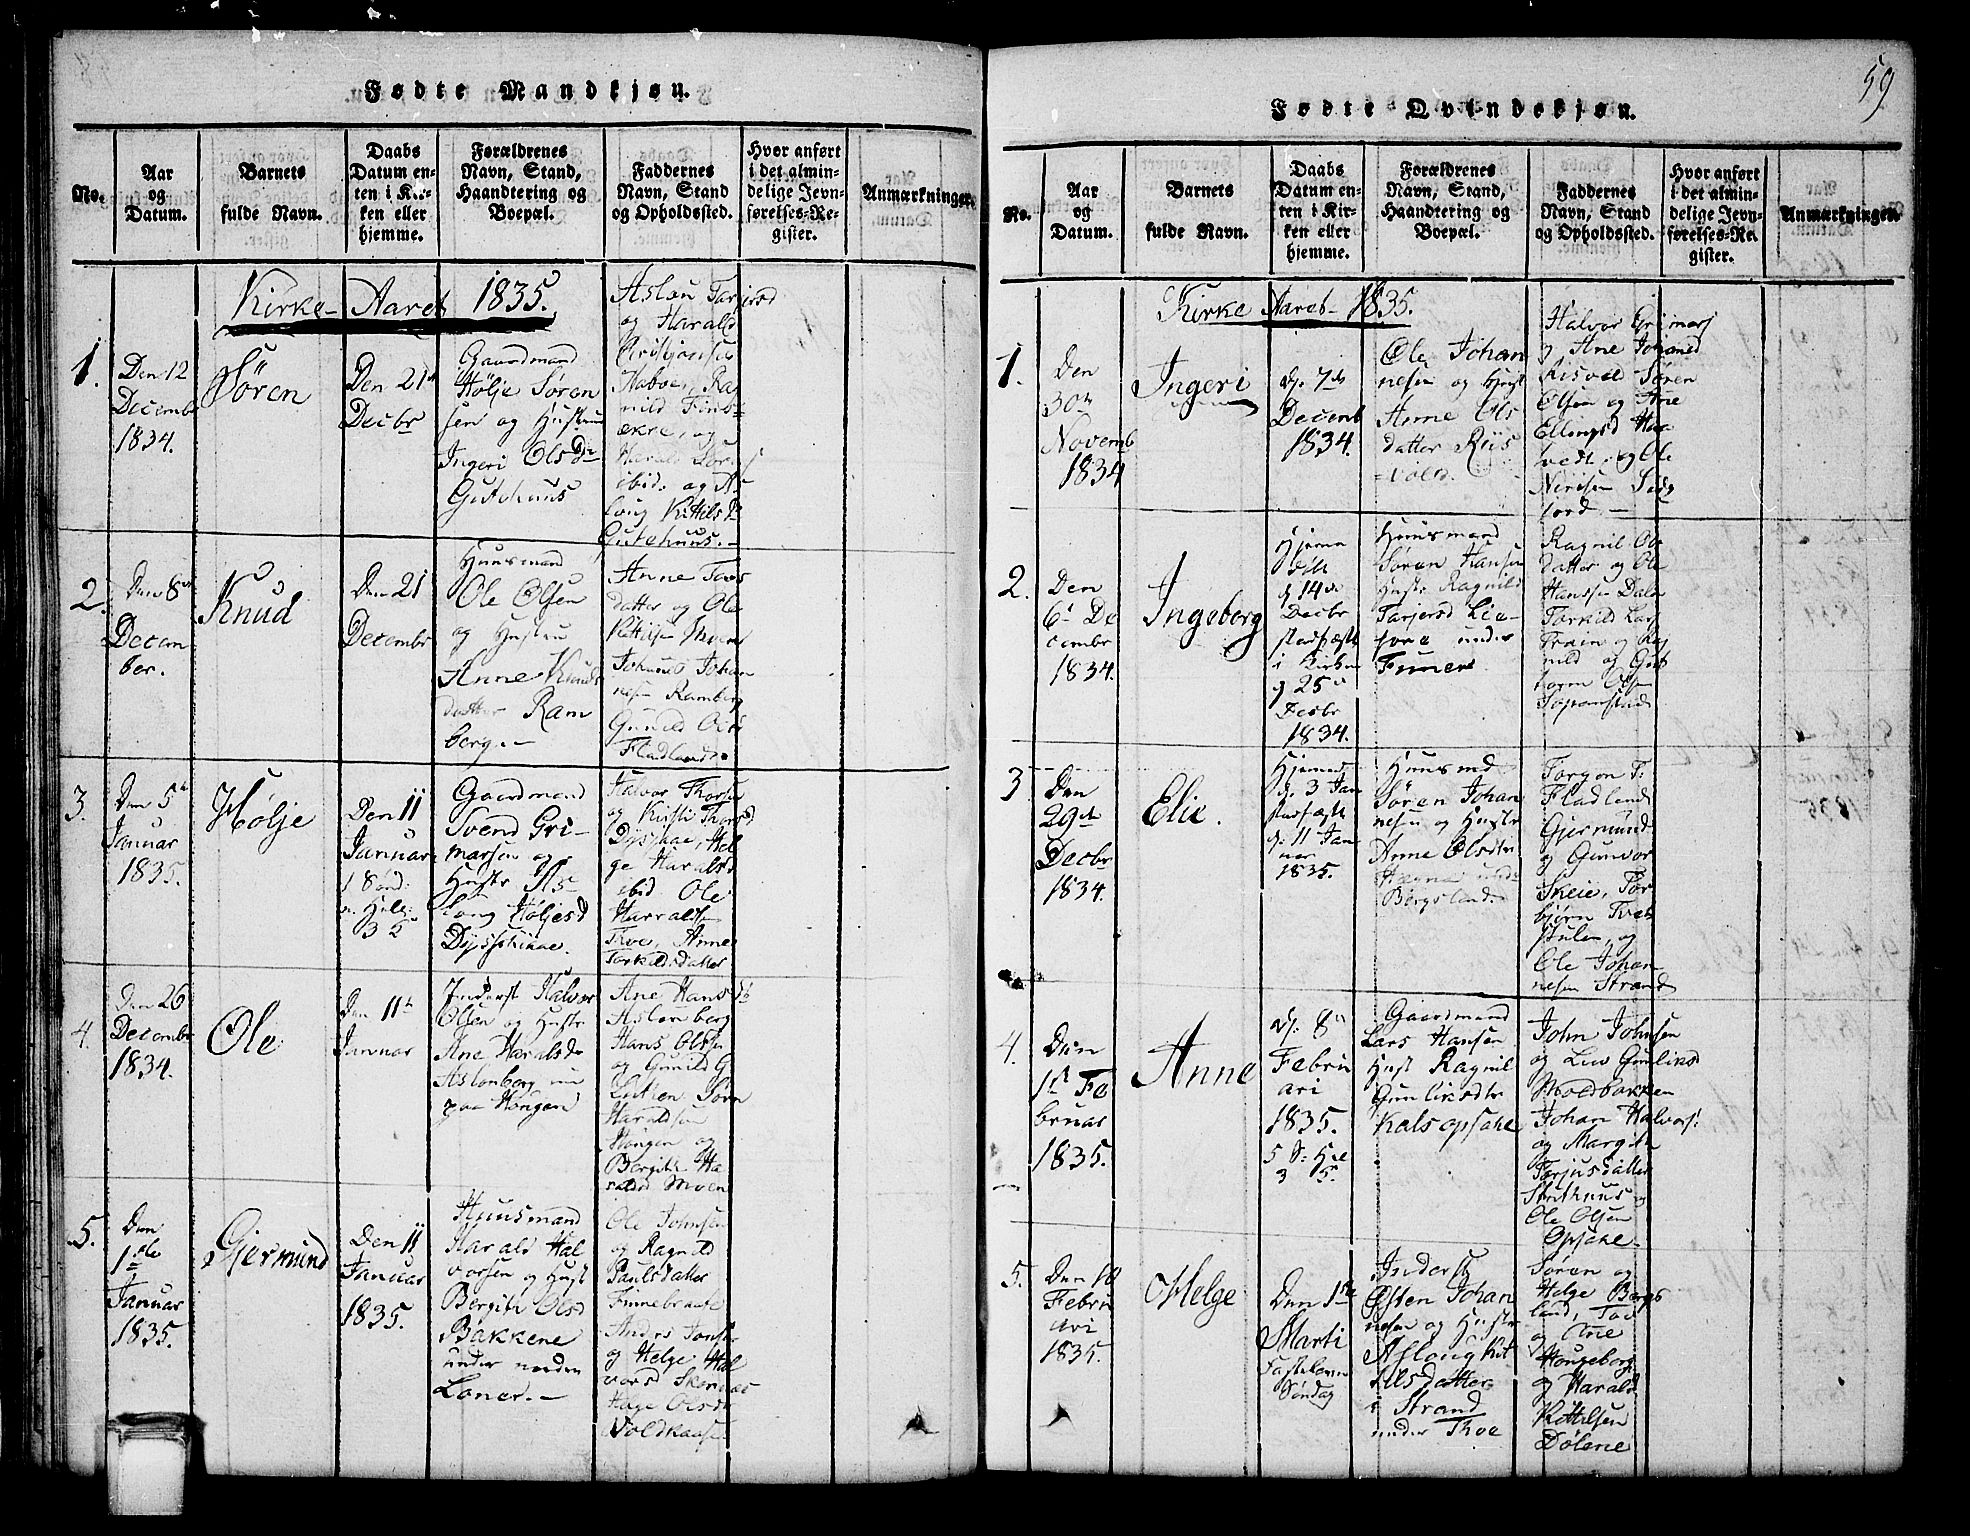 Fødte Mandkjøn.
No.
Aar
og
Datum.
Barnets
fulde Navn.
Daabs
Datum en-
ten i Kir-
ken eller
hjemme.
Forældrenes
Navn, Stand,
Haandtering og
Boepæl.
Faddernes
Navn, Stand
og Opholdssted.
Hvor anført
i det almin-
delige Jevn-
førelses-Re-
gister.
Anmærkninger.
Kirke-Aaret 1835.
1.
Den 12
Decembr
1834.
Sören
Den 21
Decbr
Gaardmand
Hølje Søren
sen og Hustru
Ingeri Olsdr
Gutehuus
Aslou Tarjersd
og Harald
Halvor, Rag
nild Finds
ekre, og
ibid. og As
loug Kittilsd
Gutehuus.-
2.
Den 8de
Decem
ber.
Knud
Den 21
Decembr
Huusmand
Ole Olsen
og Hustru
Anne Knuds
datter Ram
berg.-
Anne Tovs
datter og Ole
Kittilsen Moen
Johannes Johan
nesen Ramberg
Gunild Ols
Fladland.
3.
Den 5te
Januar
1835.
Hölje
Den 11
Januar
1 Sönd.
n. Hel.
3 K
Gaardmand
Svend Gri-
marsen og
Hustr As-
loug Höljesd
Halvor Thorsen
og Kirsti Thorsd
ge Haralds
ibid. Ole
Haralds
Thoe, Anne
Torkildsdatter
4.
Den 26
Decembr
1834.
Ole
Den 11te
Januar
Inderst Halvor
Olsen og Hustr
Ane Haralsdr
Aslonberg nu
paa Haugen
Ane Hansdr
Aslonberg
Hans Olsen
og Gunild G
Haraldsen
Haugen og
Bergith Ha
raldsd Moen
5.
Den
1ste
Januar
1835.
Gjermund
Den 11
Januar
1835.
Huusmand
Harald Hal
vorsen og Hust
Bergith Olsd
Bakkene
under norden
Loner.-
Ole Johnsen
og Ragnild
Paulsdatter
Finnebraate
og Helge Hal
vorsd
Fødte Qvindekjøn.
59
No.
Aar
og
Datum.
Barnets
fulde Navn.
Daabs
Datum en-
ten i Kir-
ken eller
hjemme.
Forældrenes
Navn, Stand,
Haandtering og
Boepæl.
Faddernes
Navn, Stand
og Opholdssted.
Hvor anført
i det almin-
delige Jevn-
førelses-Re-
gister.
Anmærkninger.
Kirke Aaret 1835.
1.
Den
30te
Novemb
1834
Ingeri
d. 7de
Decemb
1834.
Ole Johan
nesen og Hust
Anne Ols
datter Riis
vold.
Halvor Grimars
og Ane Johansd
Risvold Søren
Olsen og Ane
Ellingsd
og Ole
2.
Den
6te De
cembr
1834.
Ingeborg
Hjemme
döbt
d 14de
Decbr
stadfæstet
i Kirken
d 25de
Decbr
1834.
Huusmand
Søren Hansen
Hustr Ragnild
Tarjersd Lie-
under
Ragnil Ols
datter og Ole
Hanssen Dalen
Torkild Lars
3
Den
29de
Decbr
1834.
Elie.
Hjemme
d. 3 Jan
stadfæstet
d. 11 Jan
uar
1835.
Huusmd
Søren Johan
nesen og Hustr
Anne Olsdtr
Bergsland.
Torgon T.
Fladland
Gjermund
og Gunvor
Skeie, Tor
bjørn Tvet
og
Ole Johan-
nesen Strand
4.
Den
1st Fe
bruar
1835.
Anne
d. 8de
Febru
ari
1835.
5 S. H 3 K
Gaardmand
Lars Hansen
Hust Ragnil
Gunliksdtr
Kalsopsahe
John Johnsen
og Liv Gunliksd
Moebakken
Johan Halvors.
og Margit
Torjusdatter
og
Ole Olsen
Opsahe.
5.
Den 10
Febru
ari
1835.
Helge
Den 1ste
Marti
Fastelavns
Søndag
Inderst
Østen Johan
nesen og Hustr
Asloug Kit
tilsdatter
i Strand
under Thoe
Søren og
Helge Bergs
land, Tov
og Ane
Haugeborg
og Harald
Kittilsen
Dølene